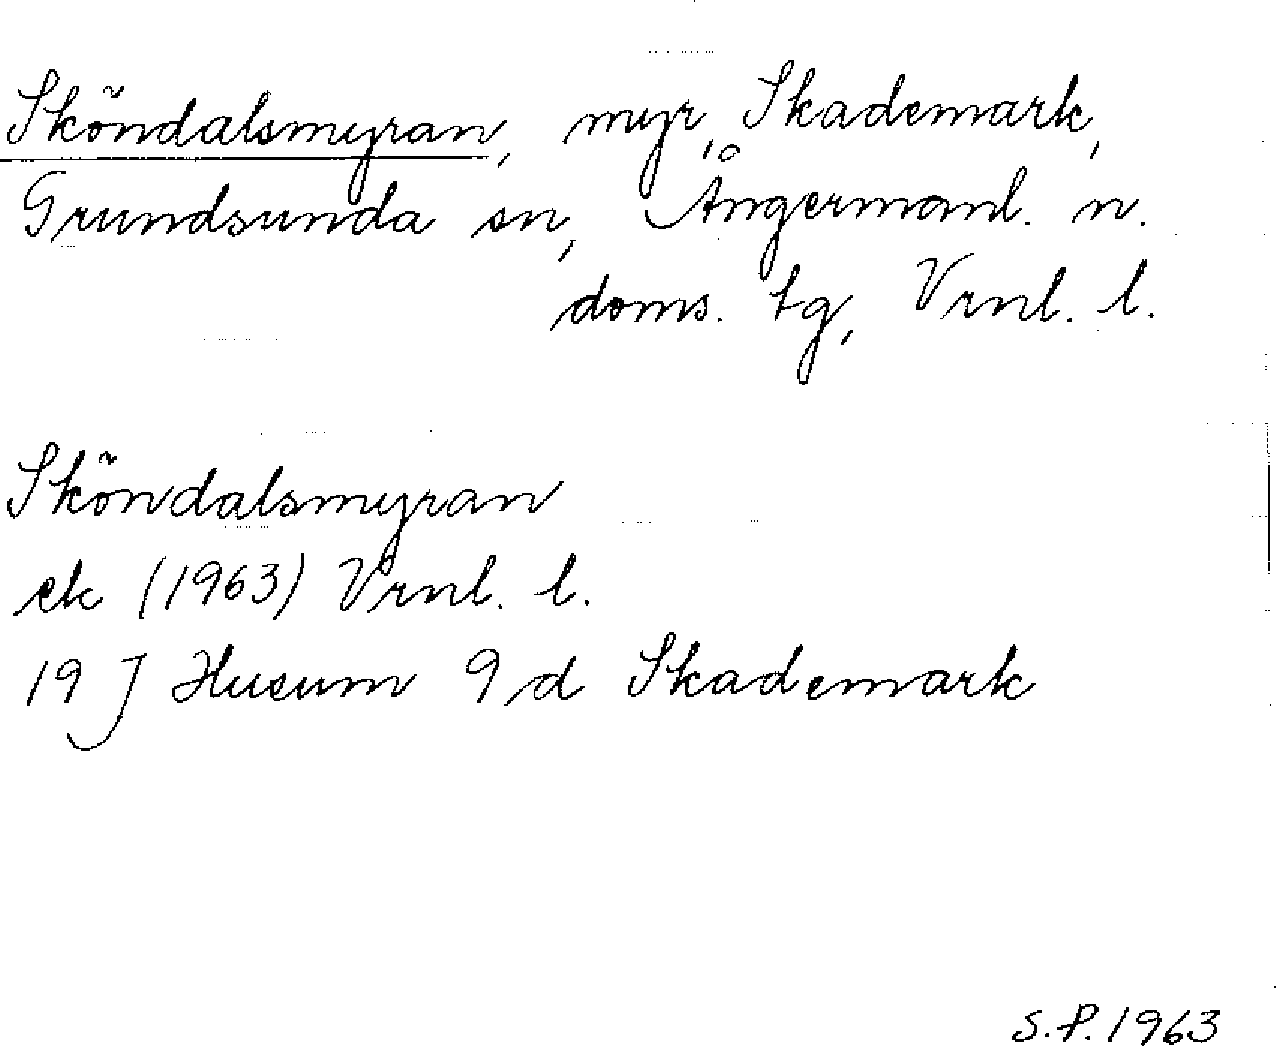 Sköndalsmyran, myr, Skademark,
Grundsunda sn, Ångermanl. n.
doms. tg, Vrnl. l.
Sköndalsmyran
ek (1963) Vrnl. l.
19 J Husum 9 d Skademark
S.P. 1963